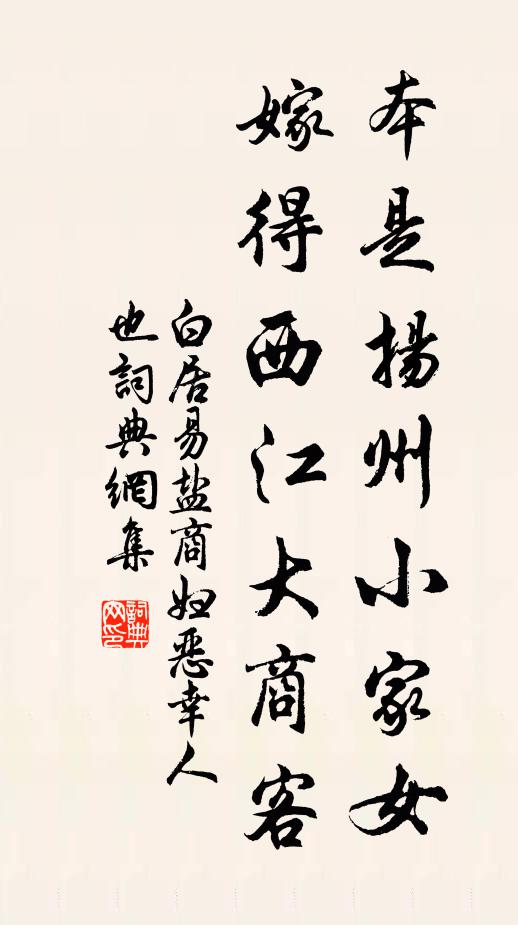 本是揚州小家女
嫁得西江大商客
白居易盐商妇惡幸人
也詞典網集
詞典网印